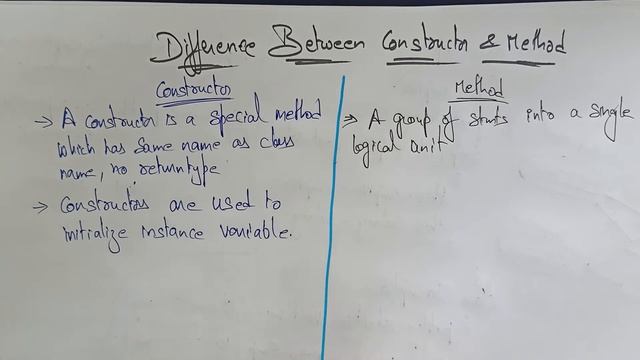 Difference Between Constructor & Method
Constructor
→ A constructor is a special method
which has same name as class
name, no returntype
→ Constructors are used to
initialize instance variable.
Method
⇒ A group of stmts into a single
logical unit